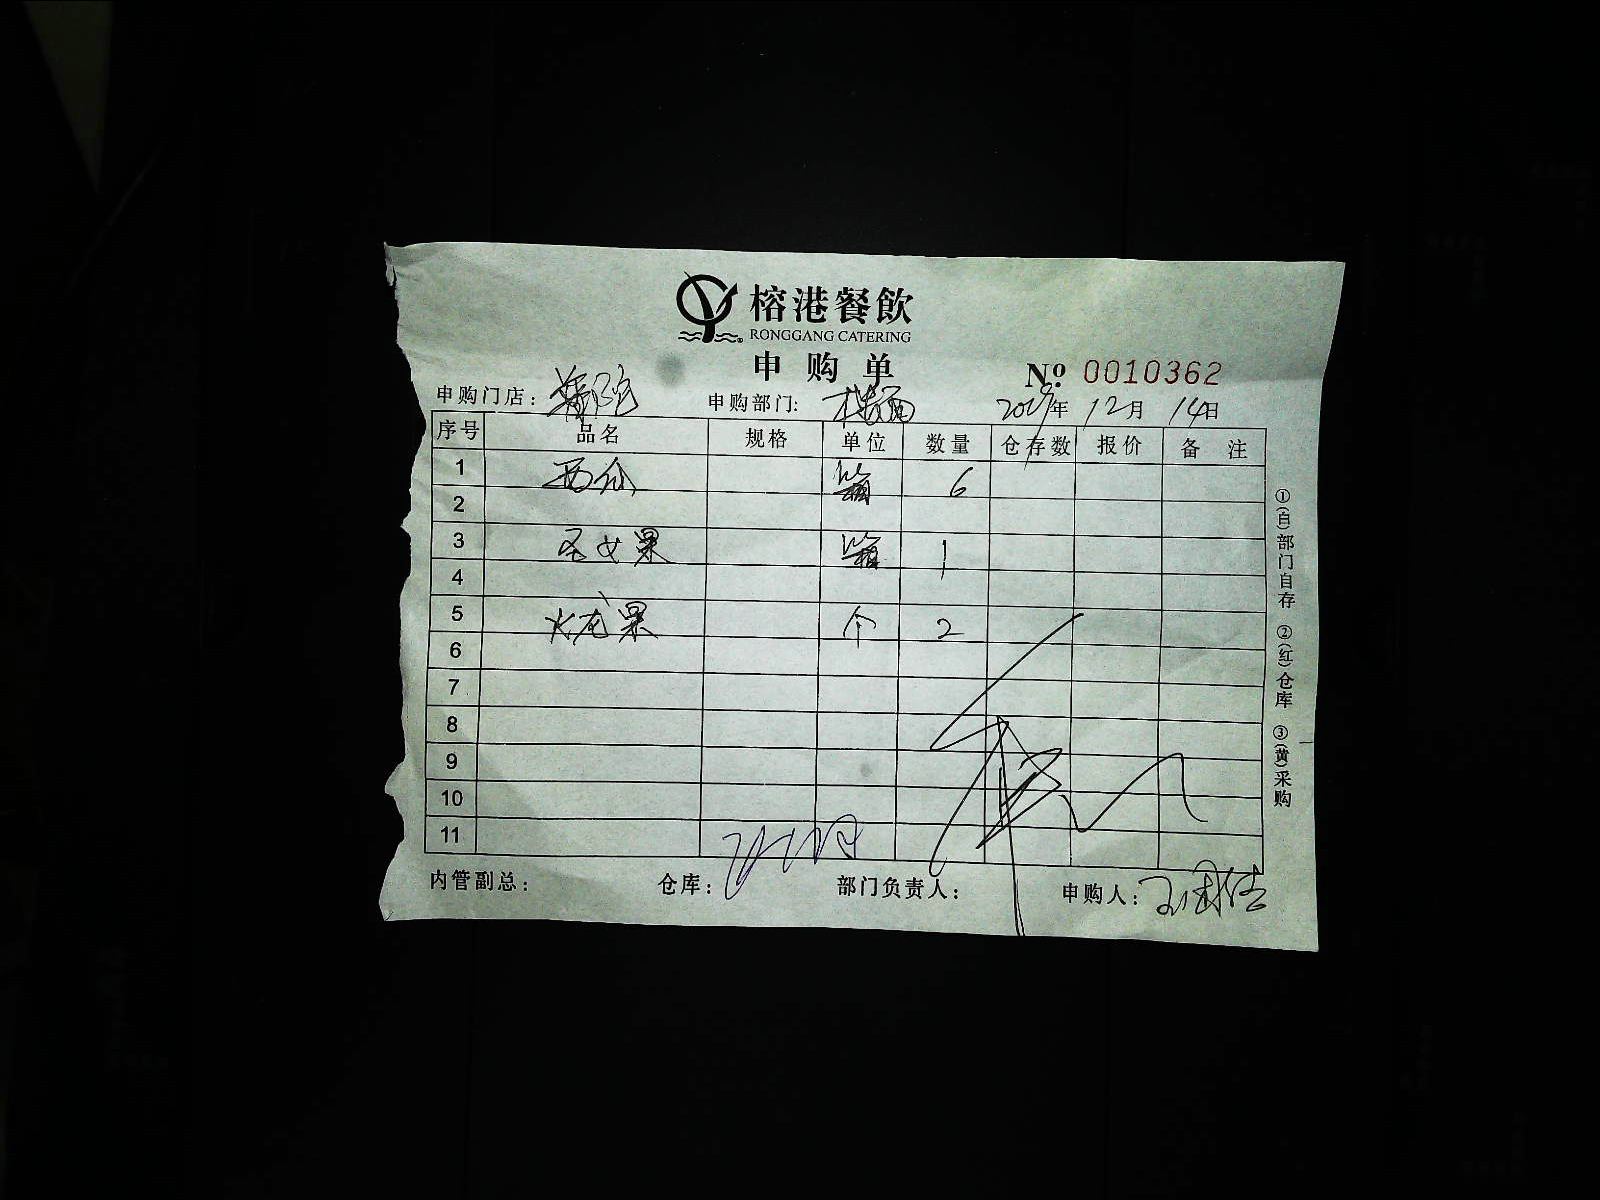 榕港餐飲
RONGGANG CATERING
申购单
№ 0010362
申购门店： 申购部门: 楼面 2019年12月14日
序号 品名 规格 单位 数量 仓存数 报价 备注
1 西仙 箱 6
2
3 圣女果 箱 1
4
5 火龙果 个 2
6
7
8
9
10
11
内管副总： 仓库： 部门负责人： 申购人：
①(白)部门自存 ②(红)仓库 ③(黄)采购